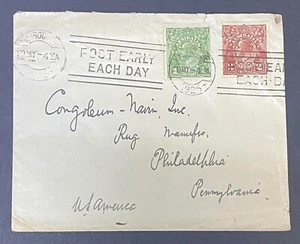 POST EARLY
EACH DAY
EACH DA
Congoleum-Nairn, Inc.
Rug Manufrs.
Philadelphia
Pennsylvania
U S America